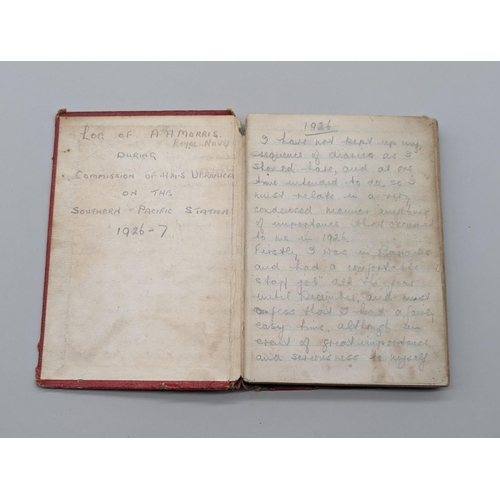 LOG OF A H MORRIS.
ROYAL NAVY
DURING
COMMISSION OF H.M.S VERONICA
ON THE
SOUTHERN - PACIFIC STATION
1926-7
1926
I have not kept up my
sequence of diaries as I
should have, and at one
time intended to do, so I
must relate in a very
condensed manner
of importance that occurred
to me in 1926.
Firstly, I was in
and had a comfortable
staff job all the year
until December, and must
confess that I had a
easy time, although an
event of great importance,
and seriousness to myself